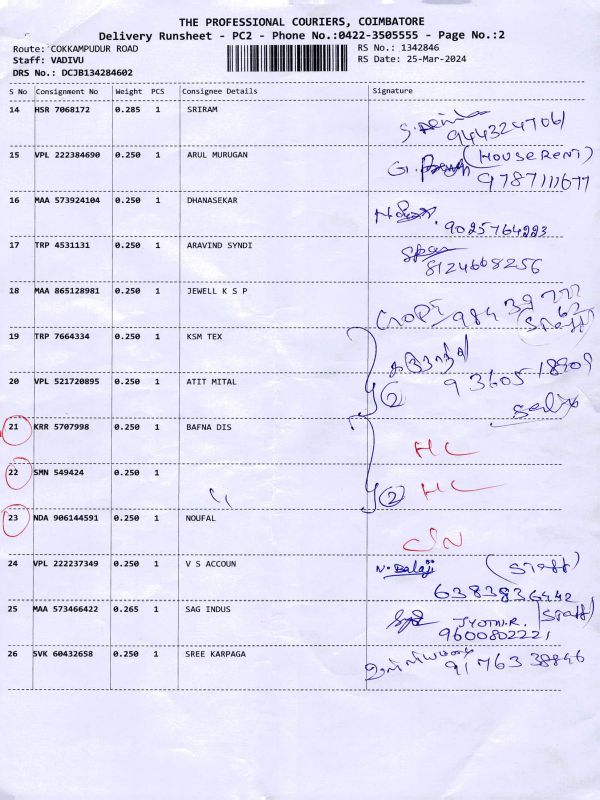 THE PROFESSIONAL COURIERS, COIMBATORE
Delivery Runsheet - PC2 - Phone No.:0422-3505555 - Page No.:2
Route: COKKAMPUDUR ROAD RS No.: 1342846
Staff: VADIVU RS Date: 25-Mar-2024
DRS No.: DCJB134284602
S No Consignment No Weight PCS Consignee Details Signature
14 HSR 7068172 0.285 1 SRIRAM
9443247061
15 VPL 222384690 0.250 1 ARUL MURUGAN (HOUSE RENT)
9787111677
16 MAA 573924104 0.250 1 DHANASEKAR
9025764223
17 TRP 4531131 0.250 1 ARAVIND SYNDI
8124608256
18 MAA 865128981 0.250 1 JEWELL K S P
(STAFF)
19 TRP 7664334 0.250 1 KSM TEX
20 VPL 521720895 0.250 1 ATIT MITAL
2
21 KRR 5707998 0.250 1 BAFNA DIS HC
22 SMN 549424 0.250 1 " 2 HC
23 NDA 906144591 0.250 1 NOUFAL
24 VPL 222237349 0.250 1 V S ACCOUN N. Balaji (STAFF)
6383836442
25 MAA 573466422 0.265 1 SAG INDUS JYOTHI.R. (STAFF)
9600802221
26 SVK 60432658 0.250 1 SREE KARPAGA
9176338846